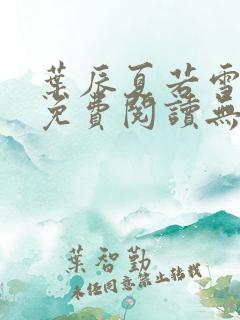 葉辰夏若雪
免費閱讀無
葉智勤
未經同意禁止轉載